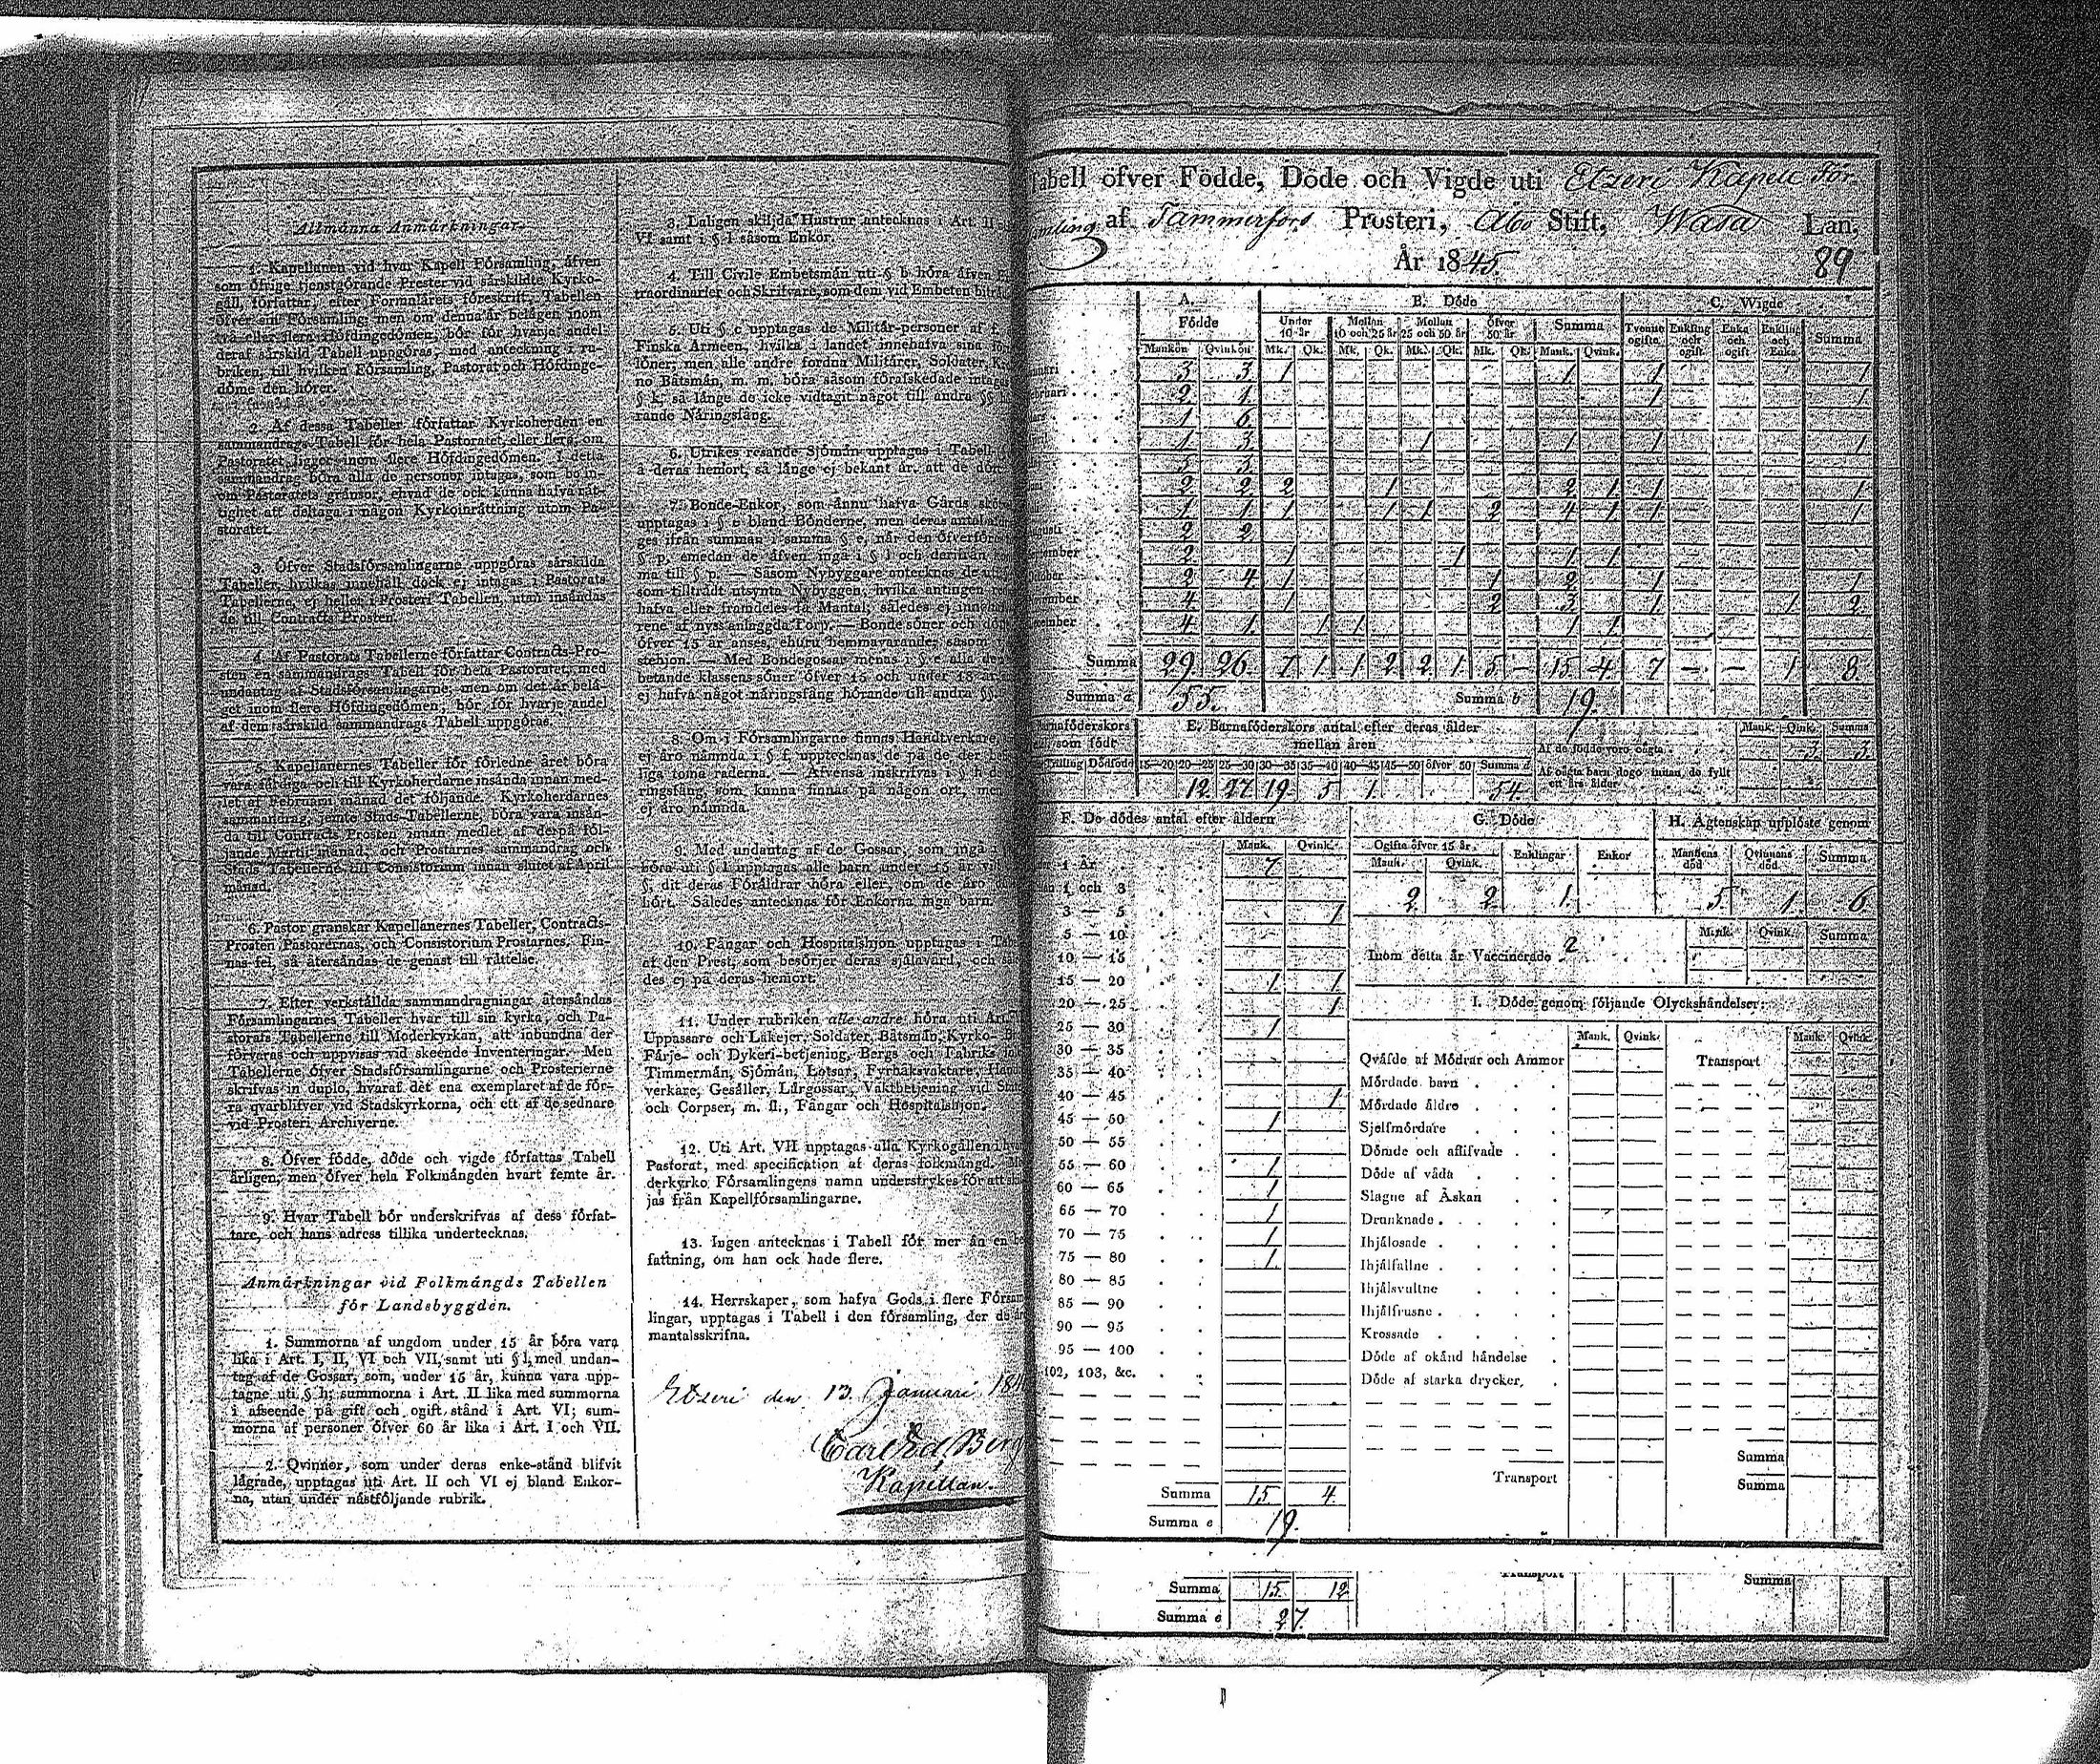 Allmänna Anmärkningar.
1. Kapellanen vid hvar Kapell Församling, äfven
som öfrige tjenstgörande Prester vid särskildte Kyrko-
gäll, författar, efter Formulärets föreskrift, Tabellen
öfver sin Församling; men om denna är belägen inom
två eller flera Höfdingedömen, bör för hvarje andel
deraf särskild Tabell uppgöras, med anteckning i ru-
briken, till hvilken Församling, Pastorat och Höfdinge-
döme den hörer.
2. Af dessa Tabeller författar Kyrkoherden en
sammandrags Tabell för hela Pastoratet, eller flera, om
Pastoratet ligger inom flere Höfdingedömen. I detta
sammandrag böra alla de personer intagas, som bo in-
om Pastoratets gränsor, ehvad de ock kunna hafva rät-
tighet att deltaga i någon Kyrkoinrättning utom Pa-
storatet.
3. Öfver Stadsförsamlingarne uppgöras särskilda
Tabeller, hvilkas innehåll dock ej intagas i Pastorats
Tabellerne, ej heller i Prosteri Tabellen, utan insändas
de till Contracts Prosten.
4. Af Pastorats Tabellerne författar Contracts-Pro-
sten en sammandrags Tabell för hela Pastoratet, med
undantag af Stadsförsamlingarne; men om det är belä-
get inom flere Höfdingedömen, bör för hvarje andel
af dem särskild sammandrags Tabell uppgöras.
5. Kapellanernes Tabeller för förledne året böra
vara färdiga och till Kyrkoherdarne insända innan med-
let af Februari månad det följande. Kyrkoherdarnes
sammandrag, jemte Stads-Tabellerne, böra vara insän-
da till Contracts Prosten innan medlet af derpå föl-
jande Martii månad, och Prostarnes sammandrag och
Stads Tabellerne till Consistorium innan slutet af April
månad.
6. Pastor granskar Kapellanernes Tabeller, Contracts-
Prosten Pastorernas, och Consistorium Prostarnes. Fin-
nas fel, så återsändas de genast till rättelse.
7. Efter verkställda sammandragningar återsändas
Församlingarnes Tabeller hvar till sin kyrka, och Pa-
storats Tabellerne till Moderkyrkan, att inbundna der
förvaras och uppvisas vid skeende Inventeringar. Men
Tabellerne öfver Stadsförsamlingarne och Prosterierne
skrifvas in duplo, hvaraf det ena exemplaret af de för-
ra qvarblifver vid Stadskyrkorna, och ett af de sednare
vid Prosteri Archiverne.
8. Öfver födde, döde och vigde författas Tabell
årligen; men öfver hela Folkmängden hvart femte år.
9. Hvar Tabell bör underskrifvas af dess förfat-
tare, och hans adress tillika undertecknas.
Anmärkningar vid Folkmängds Tabellen
för Landsbyggden.
1. Summorna af ungdom under 15 år böra vara
lika i Art. I, II, VI och VII, samt uti § l, med undan-
tag af de Gossar, som, under 15 år, kunna vara upp-
tagne uti § h; summorna i Art. II lika med summorna
i afseende på gift och ogift stånd i Art. VI; sum-
morna af personer öfver 60 år lika i Art. I och VII.
2. Qvinnor, som under deras enke-stånd blifvit
lägrade, upptagas uti Art. II och VI ej bland Enkor-
na, utan under nästföljande rubrik.
3. Laligen skiljda Hustrur antecknas i Art. II
VI samt i § l såsom Enkor.
4. Till Civile Embetsmän uti § b höra äfven
traordinarier och Skrifvare, som dem vid Embeten
5. Uti § c upptagas de Militär-personer af
Finska Armeen, hvilka i landet innehafva sina
löner; men alle andre fordna Militärer, Soldater,
no Båtsmän, m. m. böra såsom förafskedade
§ k, så länge de icke vidtagit något till andra §§
rande Näringsfång.
6. Utrikes resande Sjömän upptagas i Tabell
å deras hemort, så länge ej bekant är, att de
7. Bonde-Enkor, som ännu hafva Gårds
upptagas i § e bland Bönderne, men deras antal
ges ifrån summan i samma § e, när den
§ p, emedan de äfven ingå i § l och derifrån
ma till § p. — Såsom Nybyggare antecknas de
som tillträdt utsynta Nybyggen, hvilka antingen
hafva eller framdeles få Mantal, således ej
rene af nyss anlaggda Torp. — Bondesöner och
öfver 15 år anses, ehuru hemmavarande, såsom
stehjon. — Med Bondegossar menas i § e alla
betande klassens söner öfver 15 och under 18 år,
ej hafva något näringsfång hörande till andra §§.
8. Om i Församlingarne finnas Handtverkare,
ej äro nämnda i § f, upptecknas de på de der
liga toma raderna. — Äfvenså inskrifvas i § h
ringsfång, som kunna finnas på någon ort, men
ej äro nämnda.
9. Med undantag af de Gossar, som ingå i
böra uti § l upptagas alle barn under 15 år
§, dit deras Föräldrar höra eller, om de äro
hört. Således antecknas för Enkorna inga barn.
10. Fångar och Hospitalshjon upptagas i
af den Prest, som besörjer deras själavård, och
des ej på deras hemort.
11. Under rubriken alle andre höra, uti Art.
Uppassare och Lakejer, Soldater, Båtsmän, Kyrko-
Färje- och Dykeri-betjening, Bergs och Fabriks
Timmermän, Sjömän, Lotsar, Fyrbåksvaktare,
verkare, Gesäller, Lärgossar, Vaktbetjening vid
och Corpser, m. fl., Fångar och Hospitalshjon.
12. Uti Art. VII upptagas alla Kyrkogällen i
Pastorat, med specification af deras folkmängd.
derkyrko Församlingens namn understrykes för att
jas från Kapellförsamlingarne.
13. Ingen antecknas i Tabell för mer än en
fattning, om han ock hade flere.
14. Herrskaper, som hafva Gods i flere
lingar, upptagas i Tabell i den församling, der de
mantalsskrifna.
Etseri den 13 Januari
Carl
Kapellan.
Tabell öfver Födde, Döde och Vigde uti Etseri Kapell För-
samling af Tammerfors Prosteri, Åbo Stift, Wasa Län.
År 1845.
89
A. B. Döde C. Wigde
Födde Under 10 år Mellan 10 och 25 år Mellan 25 och 50 år Öfver 50 år Summa Tvenne ogifta Enkling och ogift Enka och ogift Enkling och Enka Summa
Mankön Qvinkön Mk. Qk. Mk. Qk. Mk. Qk. Mk. Qk. Mank. Qvink.
3 3 1 1 1 1
2 1 1 1
1 6
1 3 1 1 1 1
3 3
2 2 2 1 2 1 1 1
1 1 1 1 1 2 4 1 1 1
2 2
2 1 1 1 1
2 4 1 1 2 1 1
4 1 2 3 1 1 2
4 1 1 1 1 1
Summa 29 26 7 1 1 2 2 1 5 — 15 4 7 — — 1 8
Summa a 55. Summa b 19.
Barnaföderskors E. Barnaföderskors antal efter deras ålder Mank. Qvink. Summa
som födt mellan åren Af de födde voro oägta 3. 3.
Trilling Dödfödde 15—20 20—25 25—30 30—35 35—40 40—45 45—50 öfver 50 Summa d Af oägta barn dogo innan de fyllt
12 27 19 5 1 54. ett års ålder
F. De dödes antal efter åldern G. Döde H. Ägtenskap upplöste genom
Mank. Qvink. Ogifta öfver 15 år. Enklingar Enkor Mannens död Qvinnans död. Summa
Mank. Qvink.
1 År 7
1 och 3 2 2 1. 5. 1. 6
3 — 5 1
5 — 10 Mank. Qvink. Summa
10 — 15 Inom detta år Vaccinerade 2
15 — 20 1 1
20 — 25 1 I. Döde genom följande Olyckshändelser:
25 — 30 1 Mank. Qvink. Mank. Qvink.
30 — 35 Qväfde af Mödrar och Ammor Transport
35 — 40 Mördade barn
40 — 45 1 Mördade äldre
45 — 50 1 Sjelfmördare
50 — 55 Dömde och aflifvade
55 — 60 1 Döde af våda
60 — 65 1 Slagne af Åskan
65 — 70 1 Drunknade
70 — 75 1 Ihjälosade
75 — 80 1 Ihjälfallne
80 — 85 Ihjälsvultne
85 — 90 Ihjälfrusne
90 — 95 Krossade
95 — 100 Döde af okänd händelse
102, 103, &c. Döde af starka drycker,
Summa
Summa 15 4. Transport Summa
Summa c 19.
Transport Summa
Summa 15 12
Summa c 27.